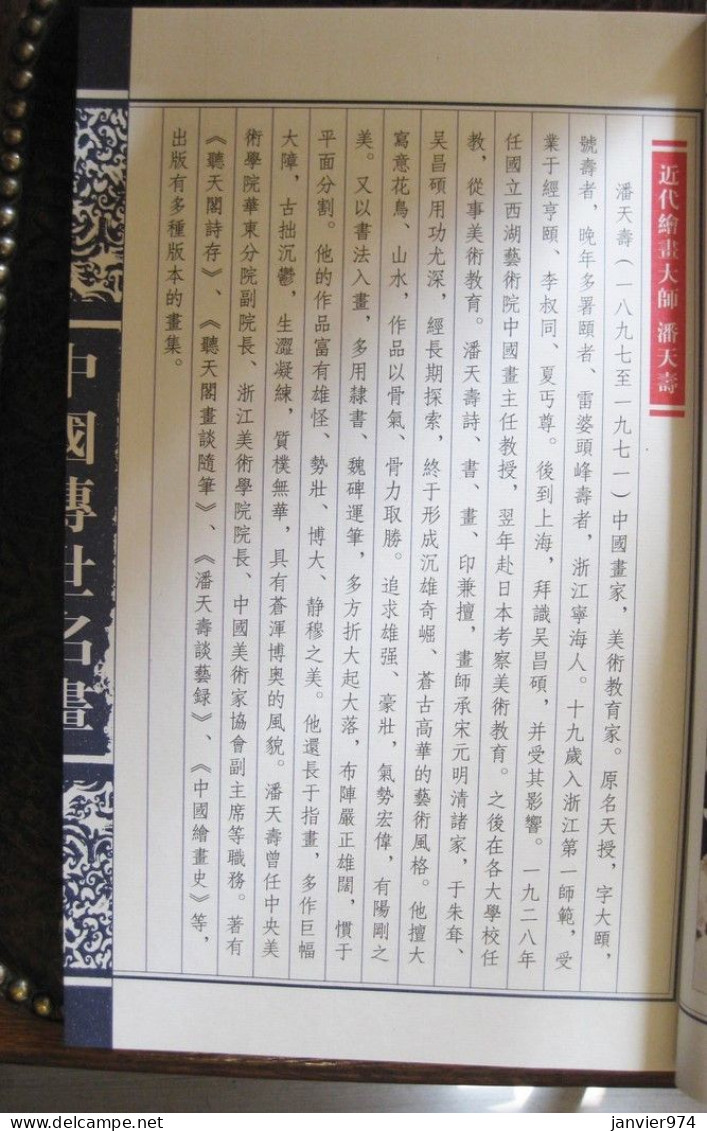 近代繪畫大師 潘天壽
潘天壽（一八九七至一九七一）中國畫家，美術教育家。原名天授，字大頤，
號壽者，晚年多署頤者、雷婆頭峰壽者，浙江寧海人。十九歲入浙江第一師範，受
業于經亨頤、李叔同、夏丏尊。後到上海，拜識吴昌碩，并受其影響。一九二八年
任國立西湖藝術院中國畫主任教授，翌年赴日本考察美術教育。之後在各大學校任
教，從事美術教育。潘天壽詩、書、畫、印兼擅，畫師承宋元明清諸家，于朱耷、
吴昌碩用功尤深，經長期探索，終于形成沉雄奇崛、蒼古高華的藝術風格。他擅大
寫意花鳥、山水，作品以骨氣、骨力取勝。追求雄强、豪壯，氣勢宏偉，有陽剛之
美。又以書法入畫，多用隸書、魏碑運筆，多方折大起大落，布陣嚴正雄闊，慣于
平面分割。他的作品富有雄怪、勢壯、博大、静穆之美。他還長于指畫，多作巨幅
大障，古拙沉鬱，生澀凝練，質樸無華，具有蒼渾博奥的風貌。潘天壽曾任中央美
術學院華東分院副院長、浙江美術學院院長、中國美術家協會副主席等職務。著有
《聽天閣詩存》、《聽天閣畫談隨筆》、《潘天壽談藝録》、《中國繪畫史》等，
出版有多種版本的畫集。
中國傳世名畫
janvier974